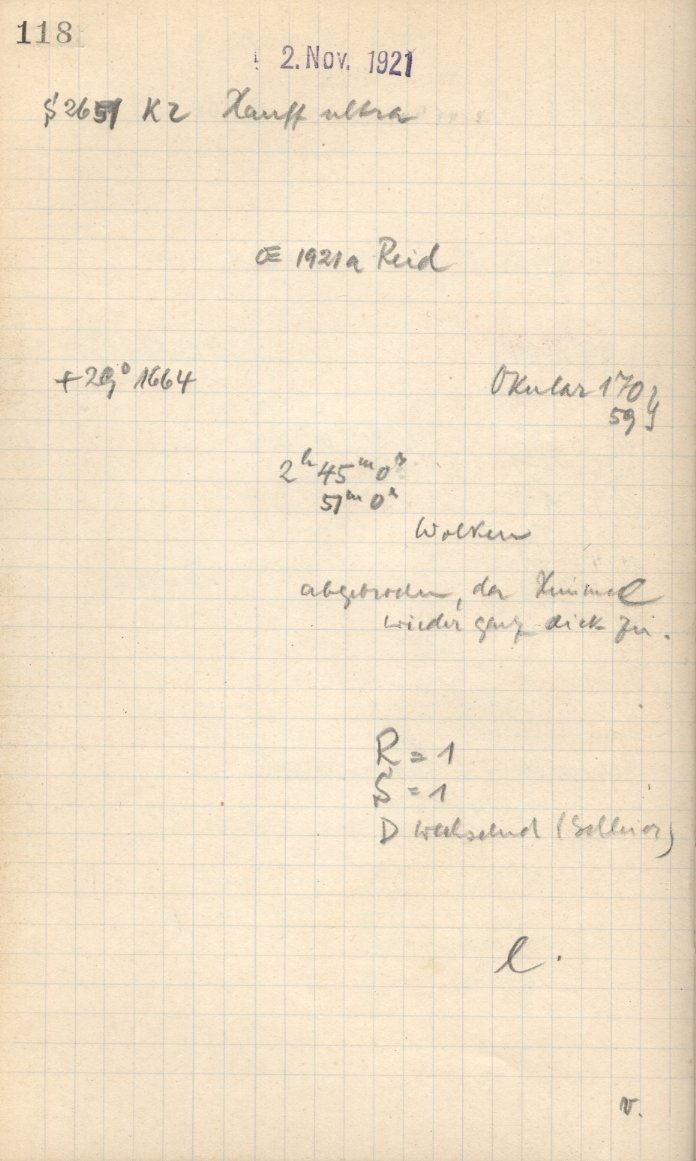 118
2. Nov. 1921
§ 2651 K2 Hauff ultra
Œ 1921a Reid
+29° 1664
Okular 170
59
2h 45m 0s
51m 0s
Wolken
abgebrochen, der Himmel
wieder ganz dick zu.
R = 1
S = 1
D wechselnd (Schleier)
l.
v.